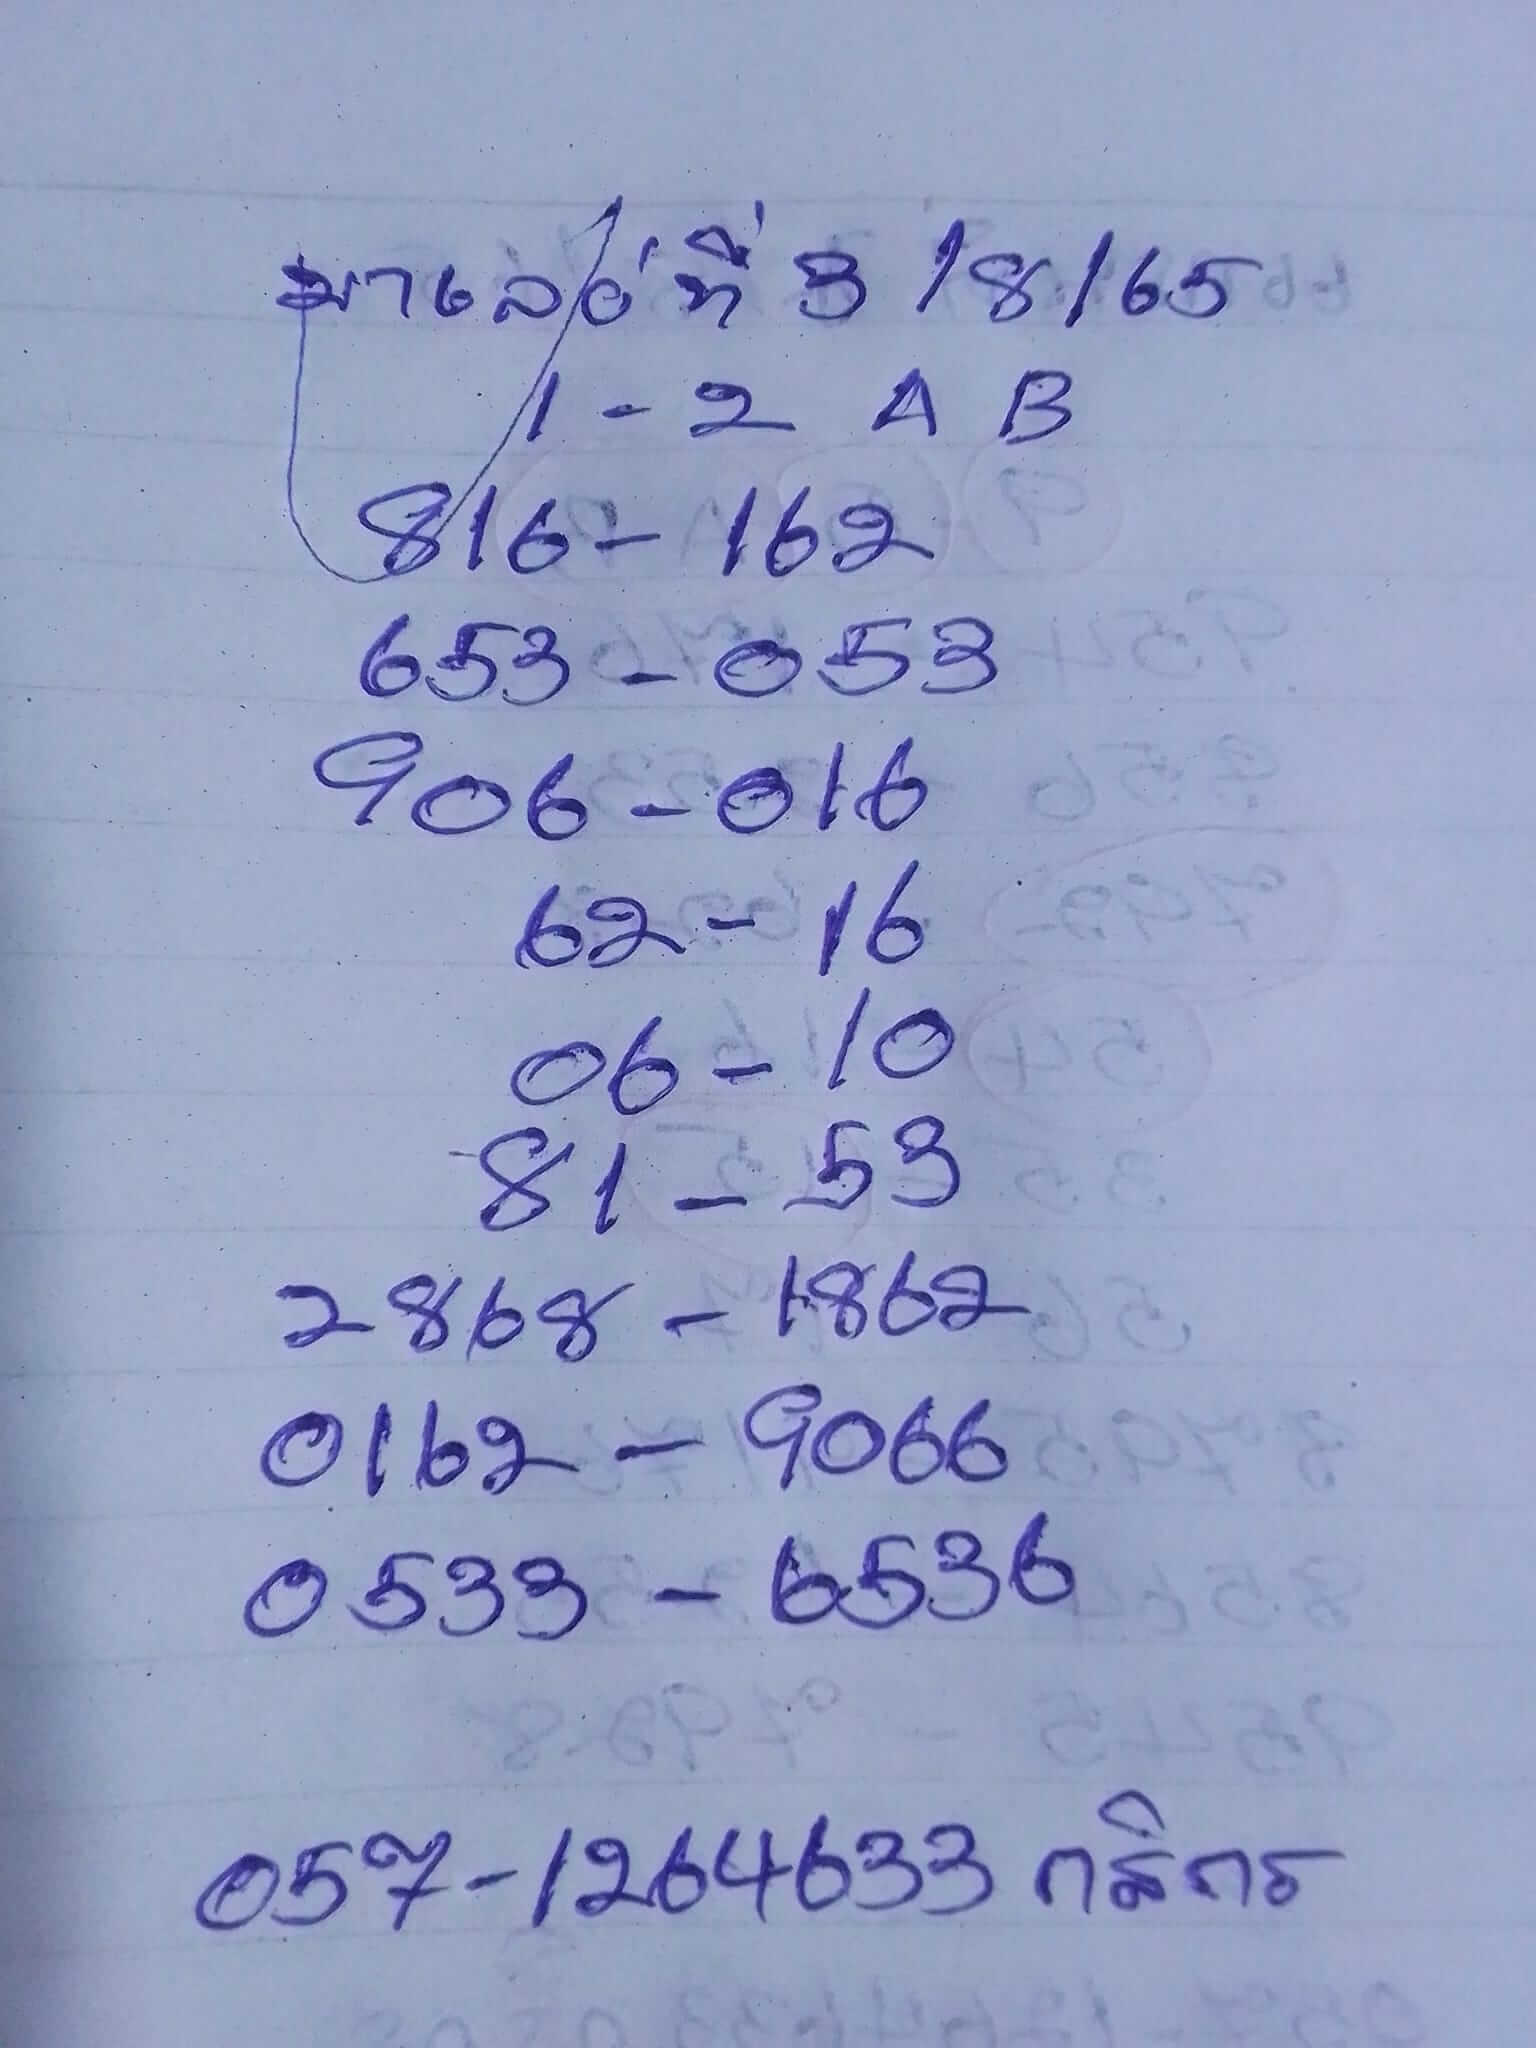 มาเลย์ที่ 3/8/65
1 - 2 A B
816 - 162
653 - 053
906 - 016
62 - 16
06 - 10
81 - 53
2868 - 1862
0162 - 9066
0533 - 6536
057-1264633 กสิกร